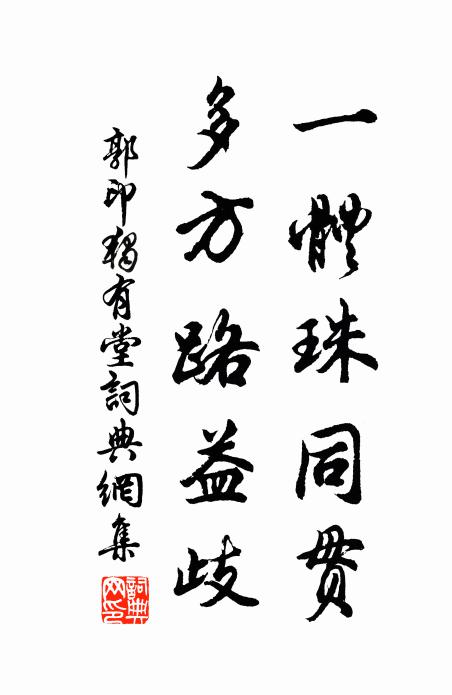 一體珠同貫
多方路益歧
郭印獨有堂詞典網集
詞典网印